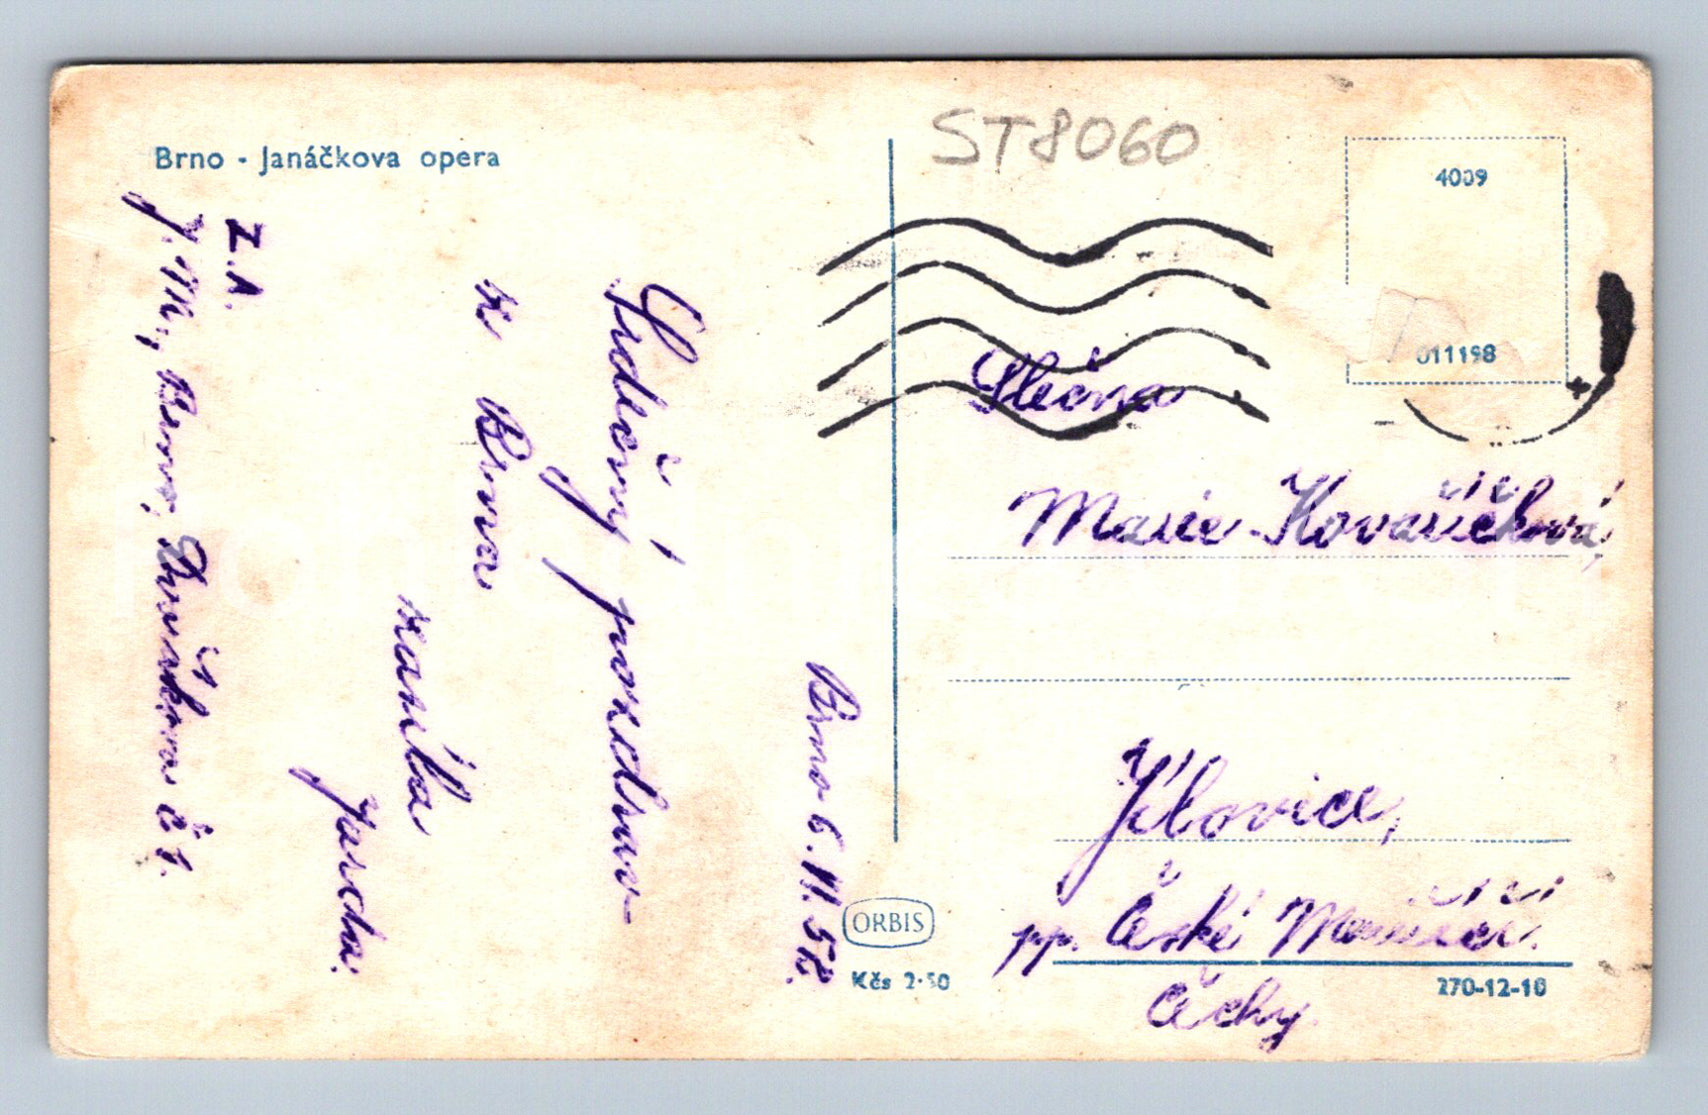 Brno - Janáčkova opera
ST8060
4009
011198
Brno 6. VI. 52.
Srdečný pozdrav
z Brna
zasílá
Jarda.
Z.A.
J. M., Brno, č 1.
Slečna
Marie Kovaříčková,
Jílovice,
pp. České
Čechy
ORBIS
Kčs 2·50
270-12-10